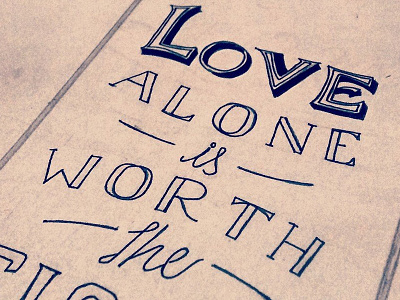 LOVE
ALONE
is
WORTH
the